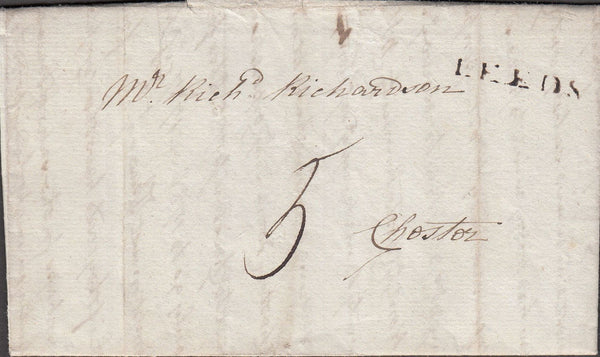 LEEDS
Mr. Richd. Richardson
5
Chester